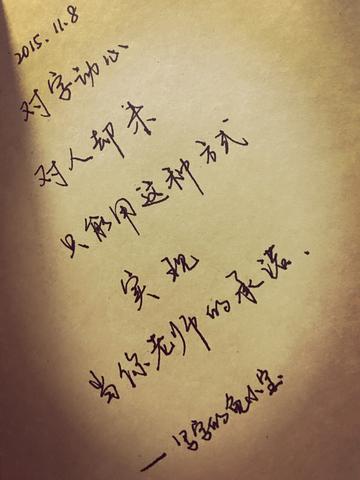 2015.11.8
对字动心
对人却未
只能用这种方式
实现
当你老师的承诺.
一写字的兔小宝